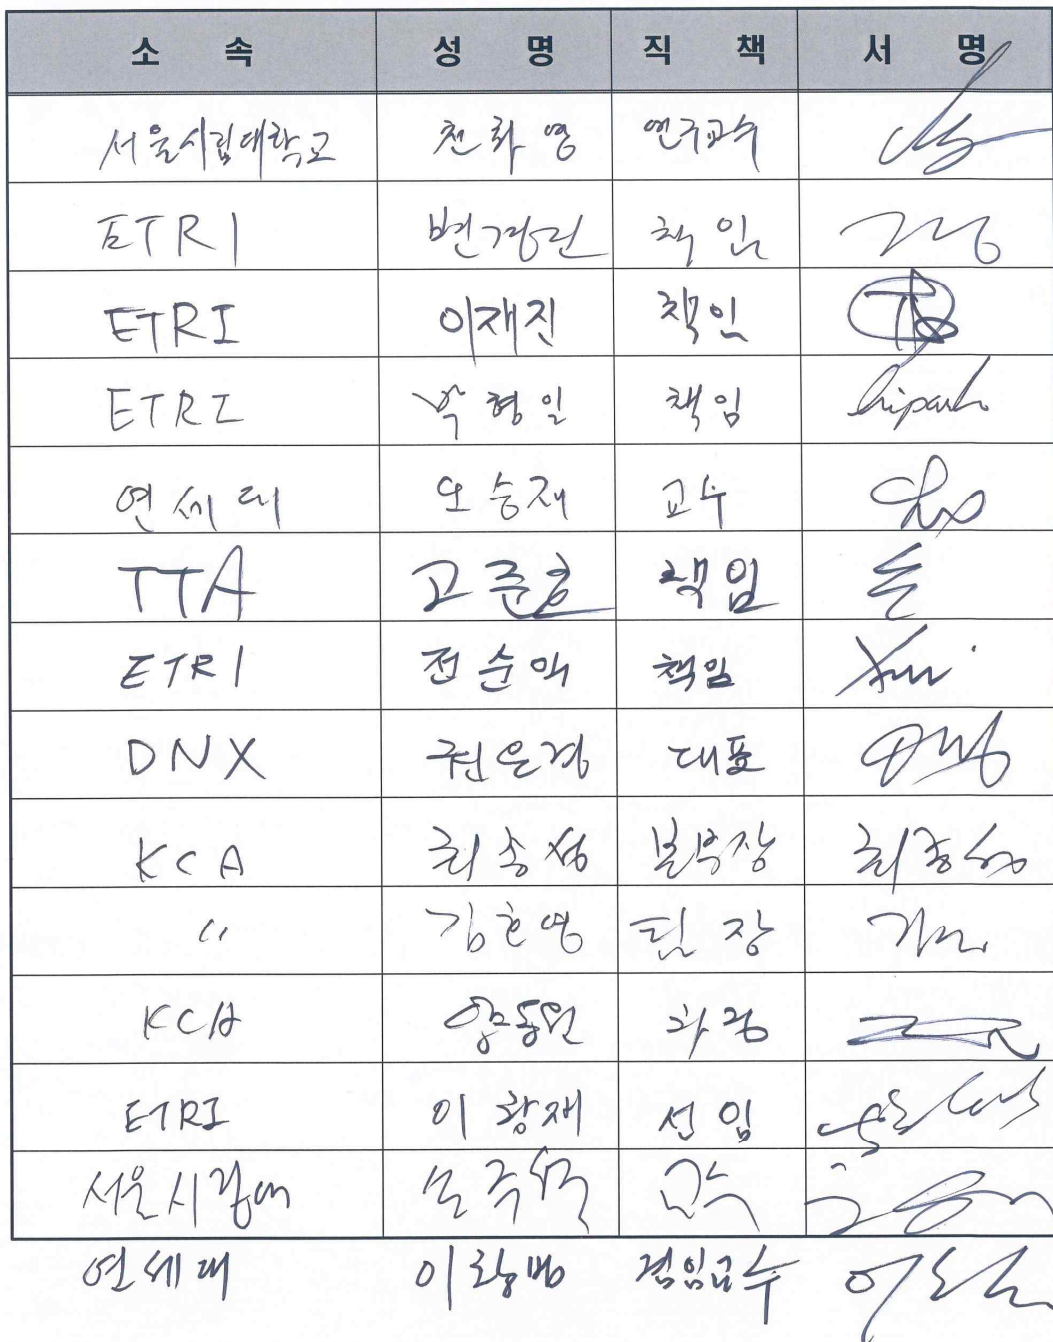 소 속 성 명 직 책 서 명
서울시립대학교 천화영 연구교수
ETRI 변경민 책임
ETRI 이재진 책임
ETRI 박형일 책임 hipark
연세대 오승재 교수
TTA 고준호 책임
ETRI 전순익 책임
DNX 권은경 대표
KCA 최종성 본부장 최종성
〃 김호영 팀장
KCA 양동원 과장
ETRI 이창재 선임
서울시립대 손주혁 교수
연세대 이황범 겸임교수